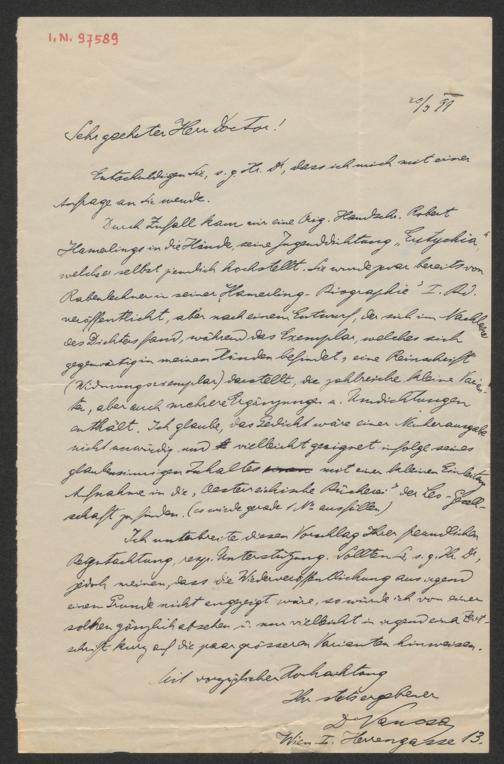 I.N. 97589
20/3 VI
Sehr geehrter Herr Doctor!
Entschuldigen Sie, s. g. Hr. Dr, dass ich mich mit einer
Anfrage an Sie wende.
Durch Zufall kam mir eine Orig. Handschr. Robert
Hamerlings in die Hände, seine Jugenddichtung „Eutychia",
welche er selbst ziemlich hochstellt. Sie wurde zwar bereits von
Rabenlechner in seiner Hamerling-Biographie I. Bd.
veröffentlicht, aber nach einem Entwurf, der sich im Nachlass
des Dichters fand, während das Exemplar, welches sich
gegenwärtig in meinen Händen befindet, eine Reinschrift
(Widmungsexemplar) darstellt, die zahlreiche kleine Varian-
ten, aber auch mehrere Ergänzungen u. Umdichtungen
enthält. Ich glaube, das Gedicht wäre einer Neuherausgabe
nicht unwürdig und vielleicht geeignet infolge seines
glaubensinnigen Inhaltes mit einer kleinen Einleitung
Aufnahme in die „Oesterreichische Bücherei" der Leo-Gesell-
schaft zu finden. (es würde gerade 1 Nr. ausfüllen)
Ich unterbreite diesen Vorschlag Ihrer freundlichen
Begutachtung, resp. Unterstützung. Sollten Sie, s. g. Hr. Dr,
jedoch meinen, dass die Wiederveröffentlichung aus irgend
einem Grunde nicht angezeigt wäre, so würde ich von einer
solchen gänzlich absehen u. nur vielleicht in irgend einer Zeit-
schrift kurz auf die paar grösseren Varianten hinweisen.
Mit vorzüglicher Hochachtung
Ihr stets ergebener
Dr Vancsa
Wien I. Herrengasse 13.